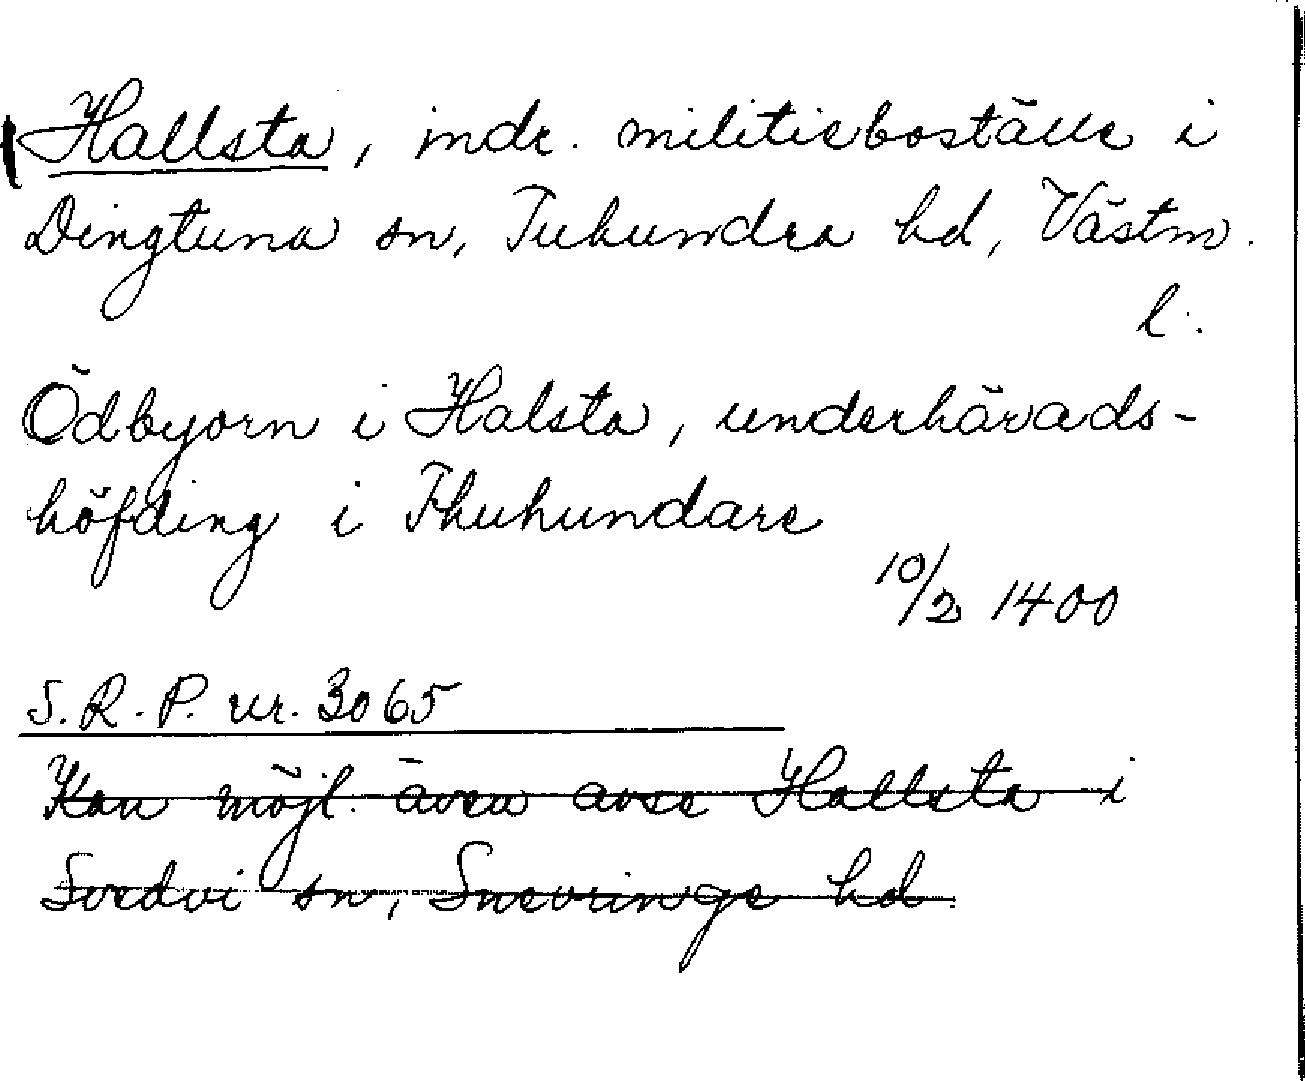 Hallsta, indr. militieboställe i
Dingtuna sn, Tuhundra hd, Västm.
l.
Ödbyorn i Halsta, underhärads-
höfding i Thuhundare
10/2 1400
S.R.P. nr. 3065
Kan möjl. även avse Hallsta i
Svedvi sn, Snevringe hd.